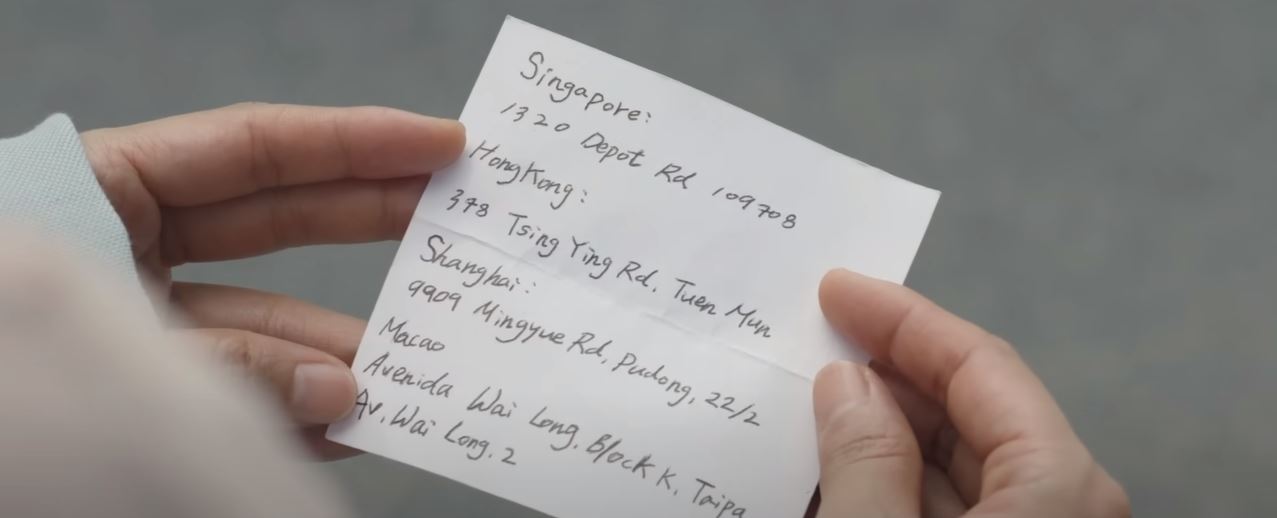 Singapore:
1320 Depot Rd 109708
HongKong:
378 Tsing Ying Rd, Tuen Mun
Shanghai:
9909 Mingyue Rd, Pudong, 22/2
Macao
Avenida Wai Long, Block K, Taipa
Av. Wai Long, 2